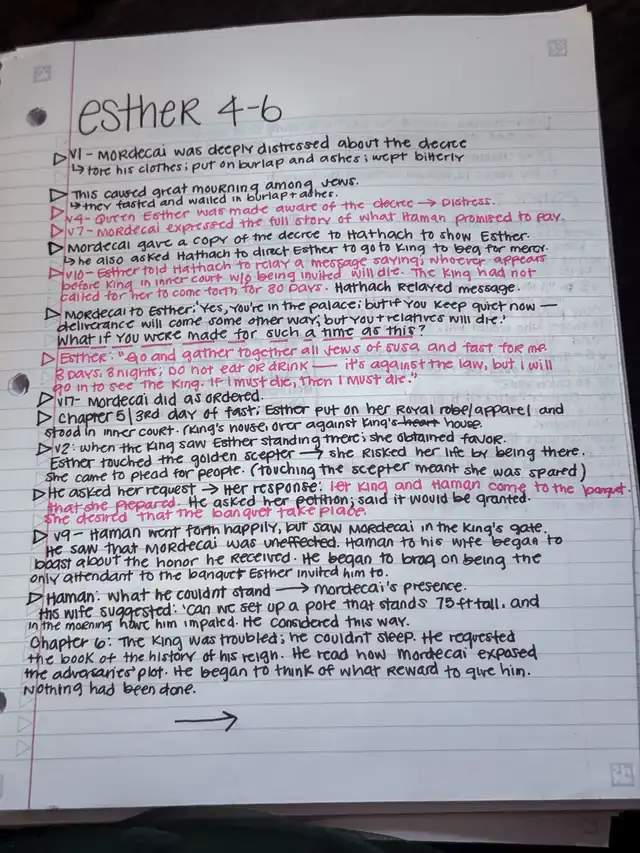 esther 4-6
▷ V1 - Mordecai was deeply distressed about the decree
↳ tore his clothes; put on burlap and ashes; wept bitterly
▷ This caused great mourning among Jews.
↳ they fasted and wailed in burlap + ashes.
▷ V4 - Queen Esther was made aware of the decree → Distress.
▷ V7 - Mordecai expressed the full story of what Haman promised to pay.
▷ Mordecai gave a copy of the decree to Hathach to show Esther.
↳ he also asked Hathach to direct Esther to go to King to beg for mercy.
▷ V10 - Esther told Hathach to relay a message saying; whoever appears
before King in inner court w/o being invited will die. The King had not
called for her to come forth for 30 Days. Hathach Relayed message.
▷ Mordecai to Esther: 'Yes, you're in the palace; but if you keep quiet now —
deliverance will come some other way, but you + relatives will die.'
What if you were made for such a time as this?
▷ Esther: "Go and gather together all Jews of Susa and fast for me.
3 Days, 3 nights; Do not eat OR drink — it's against the law, but I will
go in to see the King. If I must die, then I must die."
▷ V17 - Mordecai did as ordered.
▷ Chapter 5 | 3rd day of fast; Esther put on her Royal robe/apparel and
stood in inner court. (King's house, over against King's heart house.
▷ V2: when the King saw Esther standing there; she obtained favor.
Esther touched the golden scepter → she risked her life by being there.
She came to plead for people. (touching the scepter meant she was spared)
▷ He asked her request → Her response: let King and Haman come to the banquet
that she prepared. He asked her petition; said it would be granted.
She desired that the banquet take place.
▷ V9 - Haman went forth happily, but saw Mordecai in the King's gate.
He saw that Mordecai was uneffected. Haman to his wife began to
boast about the honor he received. He began to brag on being the
only attendant to the banquet Esther invited him to.
▷ Haman: what he couldn't stand → mordecai's presence.
His wife suggested: 'Can we set up a pole that stands 75 ft tall, and
in the morning have him impaled. He considered this way.
Chapter 6: The King was troubled; he couldnt sleep. He requested
the book of the history of his reign. He read how mordecai exposed
the adversaries' plot. He began to think of what reward to give him.
Nothing had been done.
→